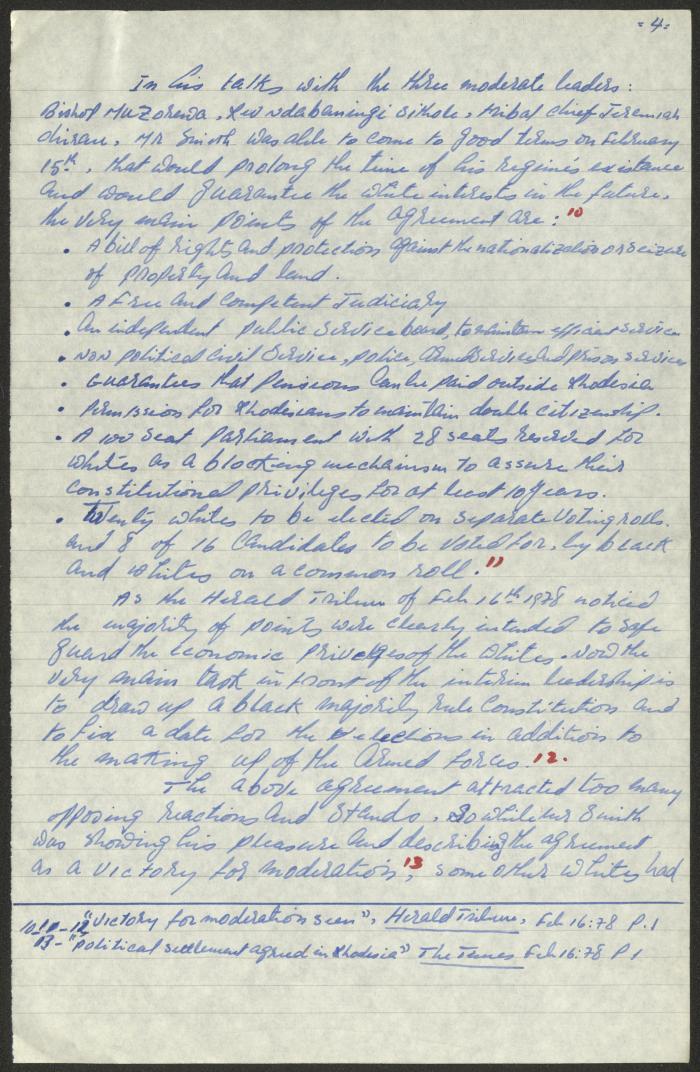 = 4 =
In his talks with the three moderate leaders:
Bishop Muzorewa, Rev Ndabaningi Sithole, tribal chief Jeremiah
Chirau, Mr Smith was able to come to good terms on February
15th, that would prolong the time of his regime's existence
and would guarantee the white interests in the future.
the very main points of the agreement are: 10
• A bill of rights and protections against the nationalization or seizure
of property and land.
• A free and competent Judiciary
• An independent public service board, to maintain efficient service
• Non political civil service, police, Armed service and prison service
• Guarantees that pensions can be paid outside Rhodesia
• permission for Rhodesians to maintain double citizenship.
• A 100 seat parliament with 28 seats reserved for
whites as a blocking mechanism to assure their
constitutional privileges for at least 10 years.
• Twenty whites to be elected on separate voting rolls.
and 8 of 16 candidates to be voted for, by black
and whites on a common roll. 11
As the Herald Tribune of Feb 16th 1978 noticed
the majority of points were clearly intended to safe
guard the economic privelges of the whites. Now the
very main task in front of the interim leadership is
to draw up a black majority rule constitution and
to fix a date for the elections in addition to
the making up of the Armed forces. 12.
The above agreement attracted too many
opposing reactions and stands. So while mr Smith
was showing his pleasure and describing the agreement
as a victory for moderations 13, some other whites had
10-11-12 "Victory for moderation seen", Herald Tribune, Feb 16:78 P.1
13- "political settlement agreed in Rhodesia" The Times Feb 16:78 P1